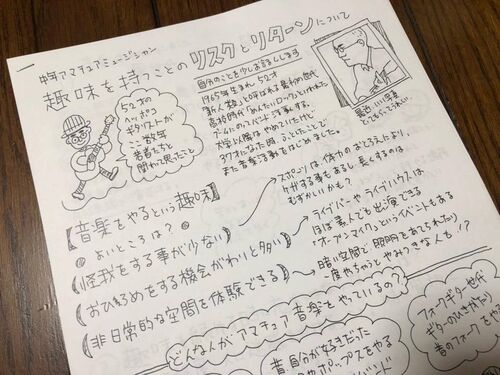 中年アマチュアミュージシャン
趣味を持つことのリスクとリターンについて
自分のことを少しお話しします
1965年生まれ、52才
「新人類」と呼ばれる最初の世代
高校時代「めんたいロック」といわれた
ブームにのってバンド活動する。
大学以降はやめていたけど
37才になった時、ふとしたことで
また音楽活動をはじめました。
最近、いい写真
とってもらってうれしい。
52才の
ヘッポコ
ギタリストが
ここ数年
若者たちと
関わって思ったこと
音楽をやるという趣味
よいところは?
怪我をする事が少ない
おひろめをする機会がわりと多い
非日常的な空間を体験できる
スポーツは体力のおとろえだったり、
ケガする事もあるし、長くするのは
むずかしいかも?
ライブバーやライブハウスは
ほぼ素人でも出演できる
"オープンマイク"というイベントもある
暗い空間で照明をあてられたり
一度やっちゃうとやみつきな人も!?
どんな人がアマチュア音楽をやっているの?
昔自分が好きだった
ポップスをやる
バンド
フォークギター世代
ギターのひきがたり
昔のフォークをやる